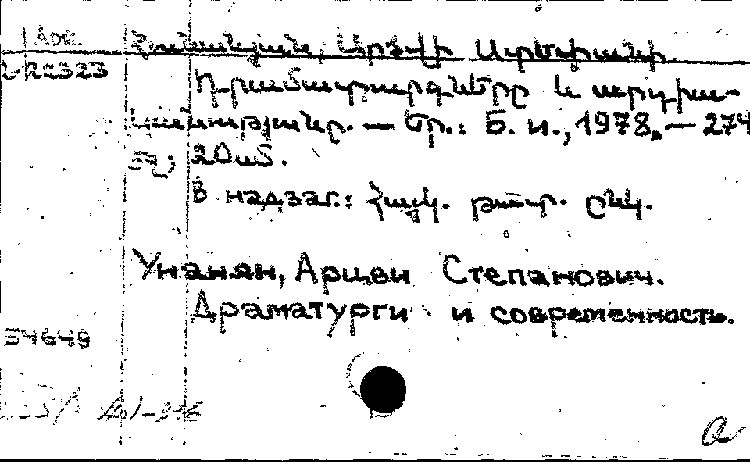 Հունանյան, Արցվի Ստեփանի.
22323
Դրամատուրգները և արդիա-
կանությունը. — Եր.: Б. и., 1978. — 274
էջ; 20սմ.
В надзаг.: Հայկ. թատր. ընկ.
Унанян, Арцви Степанович.
Драматурги и современность.
54649
a